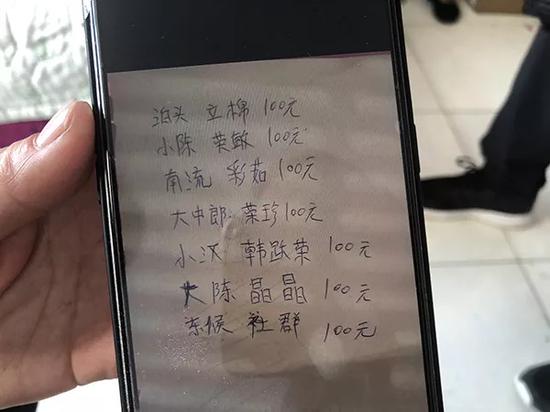 泊头 立棉 100元
小陈 英敏 100元
南流 彩茹 100元
大中郎 荣珍 100元
小汉 韩跃荣 100元
大陈 晶晶 100元
东侯 社群 100元